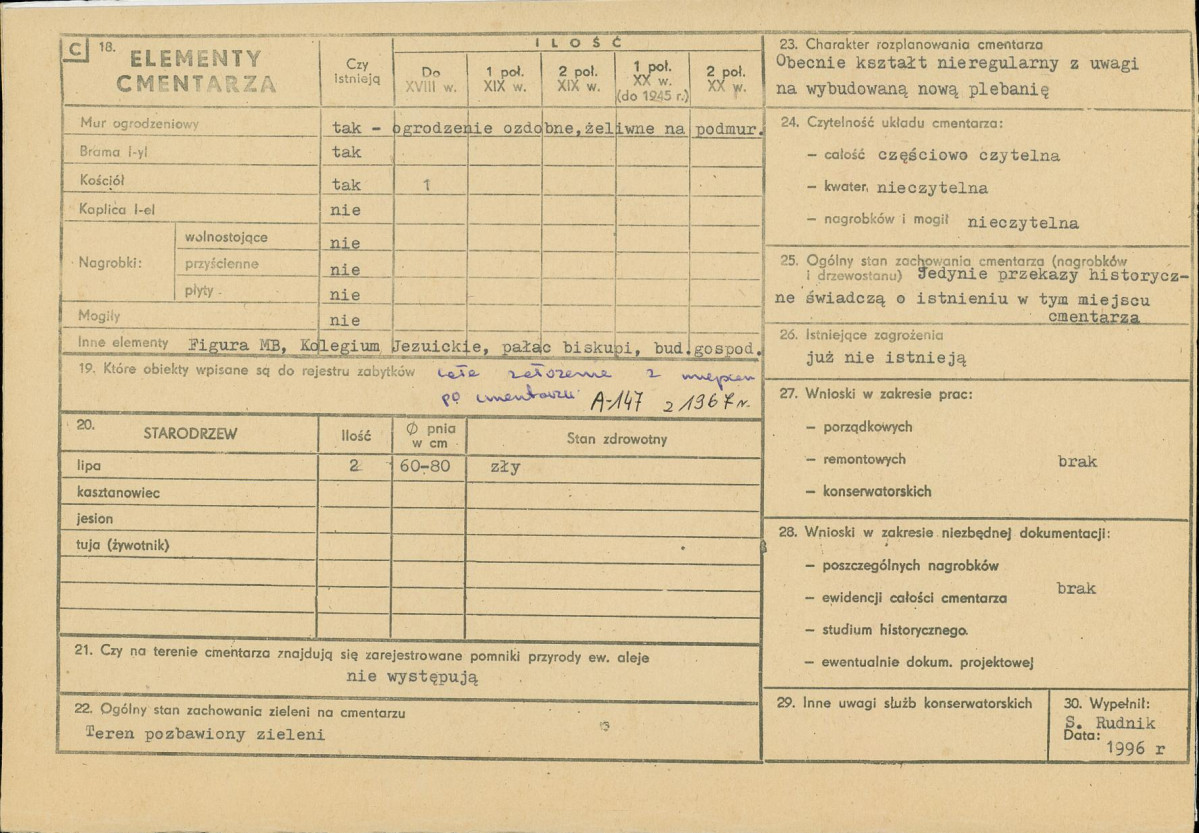 C 18. ELEMENTY CMENTARZA
Czy istnieją
ILOŚĆ
Do XVIII w.
1 poł. XIX w.
2 poł. XIX w.
1 poł. XX w. (do 1945 r.)
2 poł. XX w.
Mur ogrodzeniowy tak - ogrodzenie ozdobne,żeliwne na podmur.
Brama I-yl tak
Kościół tak 1
Kaplica I-el nie
Nagrobki:
wolnostojące nie
przyścienne nie
płyty nie
Mogiły nie
Inne elementy Figura MB, Kolegium Jezuickie, pałac biskupi, bud.gospod.
19. Które obiekty wpisane są do rejestru zabytków całe założenie z miejscem
po cmentarzu A-147 z 1967 r.
20. STARODRZEW Ilość Ø pnia w cm Stan zdrowotny
lipa 2 60-80 zły
kasztanowiec
jesion
tuja (żywotnik)
21. Czy na terenie cmentarza znajdują się zarejestrowane pomniki przyrody ew. aleje
nie występują
22. Ogólny stan zachowania zieleni na cmentarzu
Teren pozbawiony zieleni
23. Charakter rozplanowania cmentarza
Obecnie kształt nieregularny z uwagi
na wybudowaną nową plebanię
24. Czytelność układu cmentarza:
— całość częściowo czytelna
— kwater, nieczytelna
— nagrobków i mogił nieczytelna
25. Ogólny stan zachowania cmentarza (nagrobków
i drzewostanu) Jedynie przekazy historycz-
ne świadczą o istnieniu w tym miejscu
cmentarza
26. Istniejące zagrożenia
już nie istnieją
27. Wnioski w zakresie prac:
— porządkowych
— remontowych brak
— konserwatorskich
28. Wnioski w zakresie niezbędnej dokumentacji:
— poszczególnych nagrobków
brak
— ewidencji całości cmentarza
— studium historycznego.
— ewentualnie dokum. projektowej
29. Inne uwagi służb konserwatorskich
30. Wypełnił:
S. Rudnik
Data:
1996 r